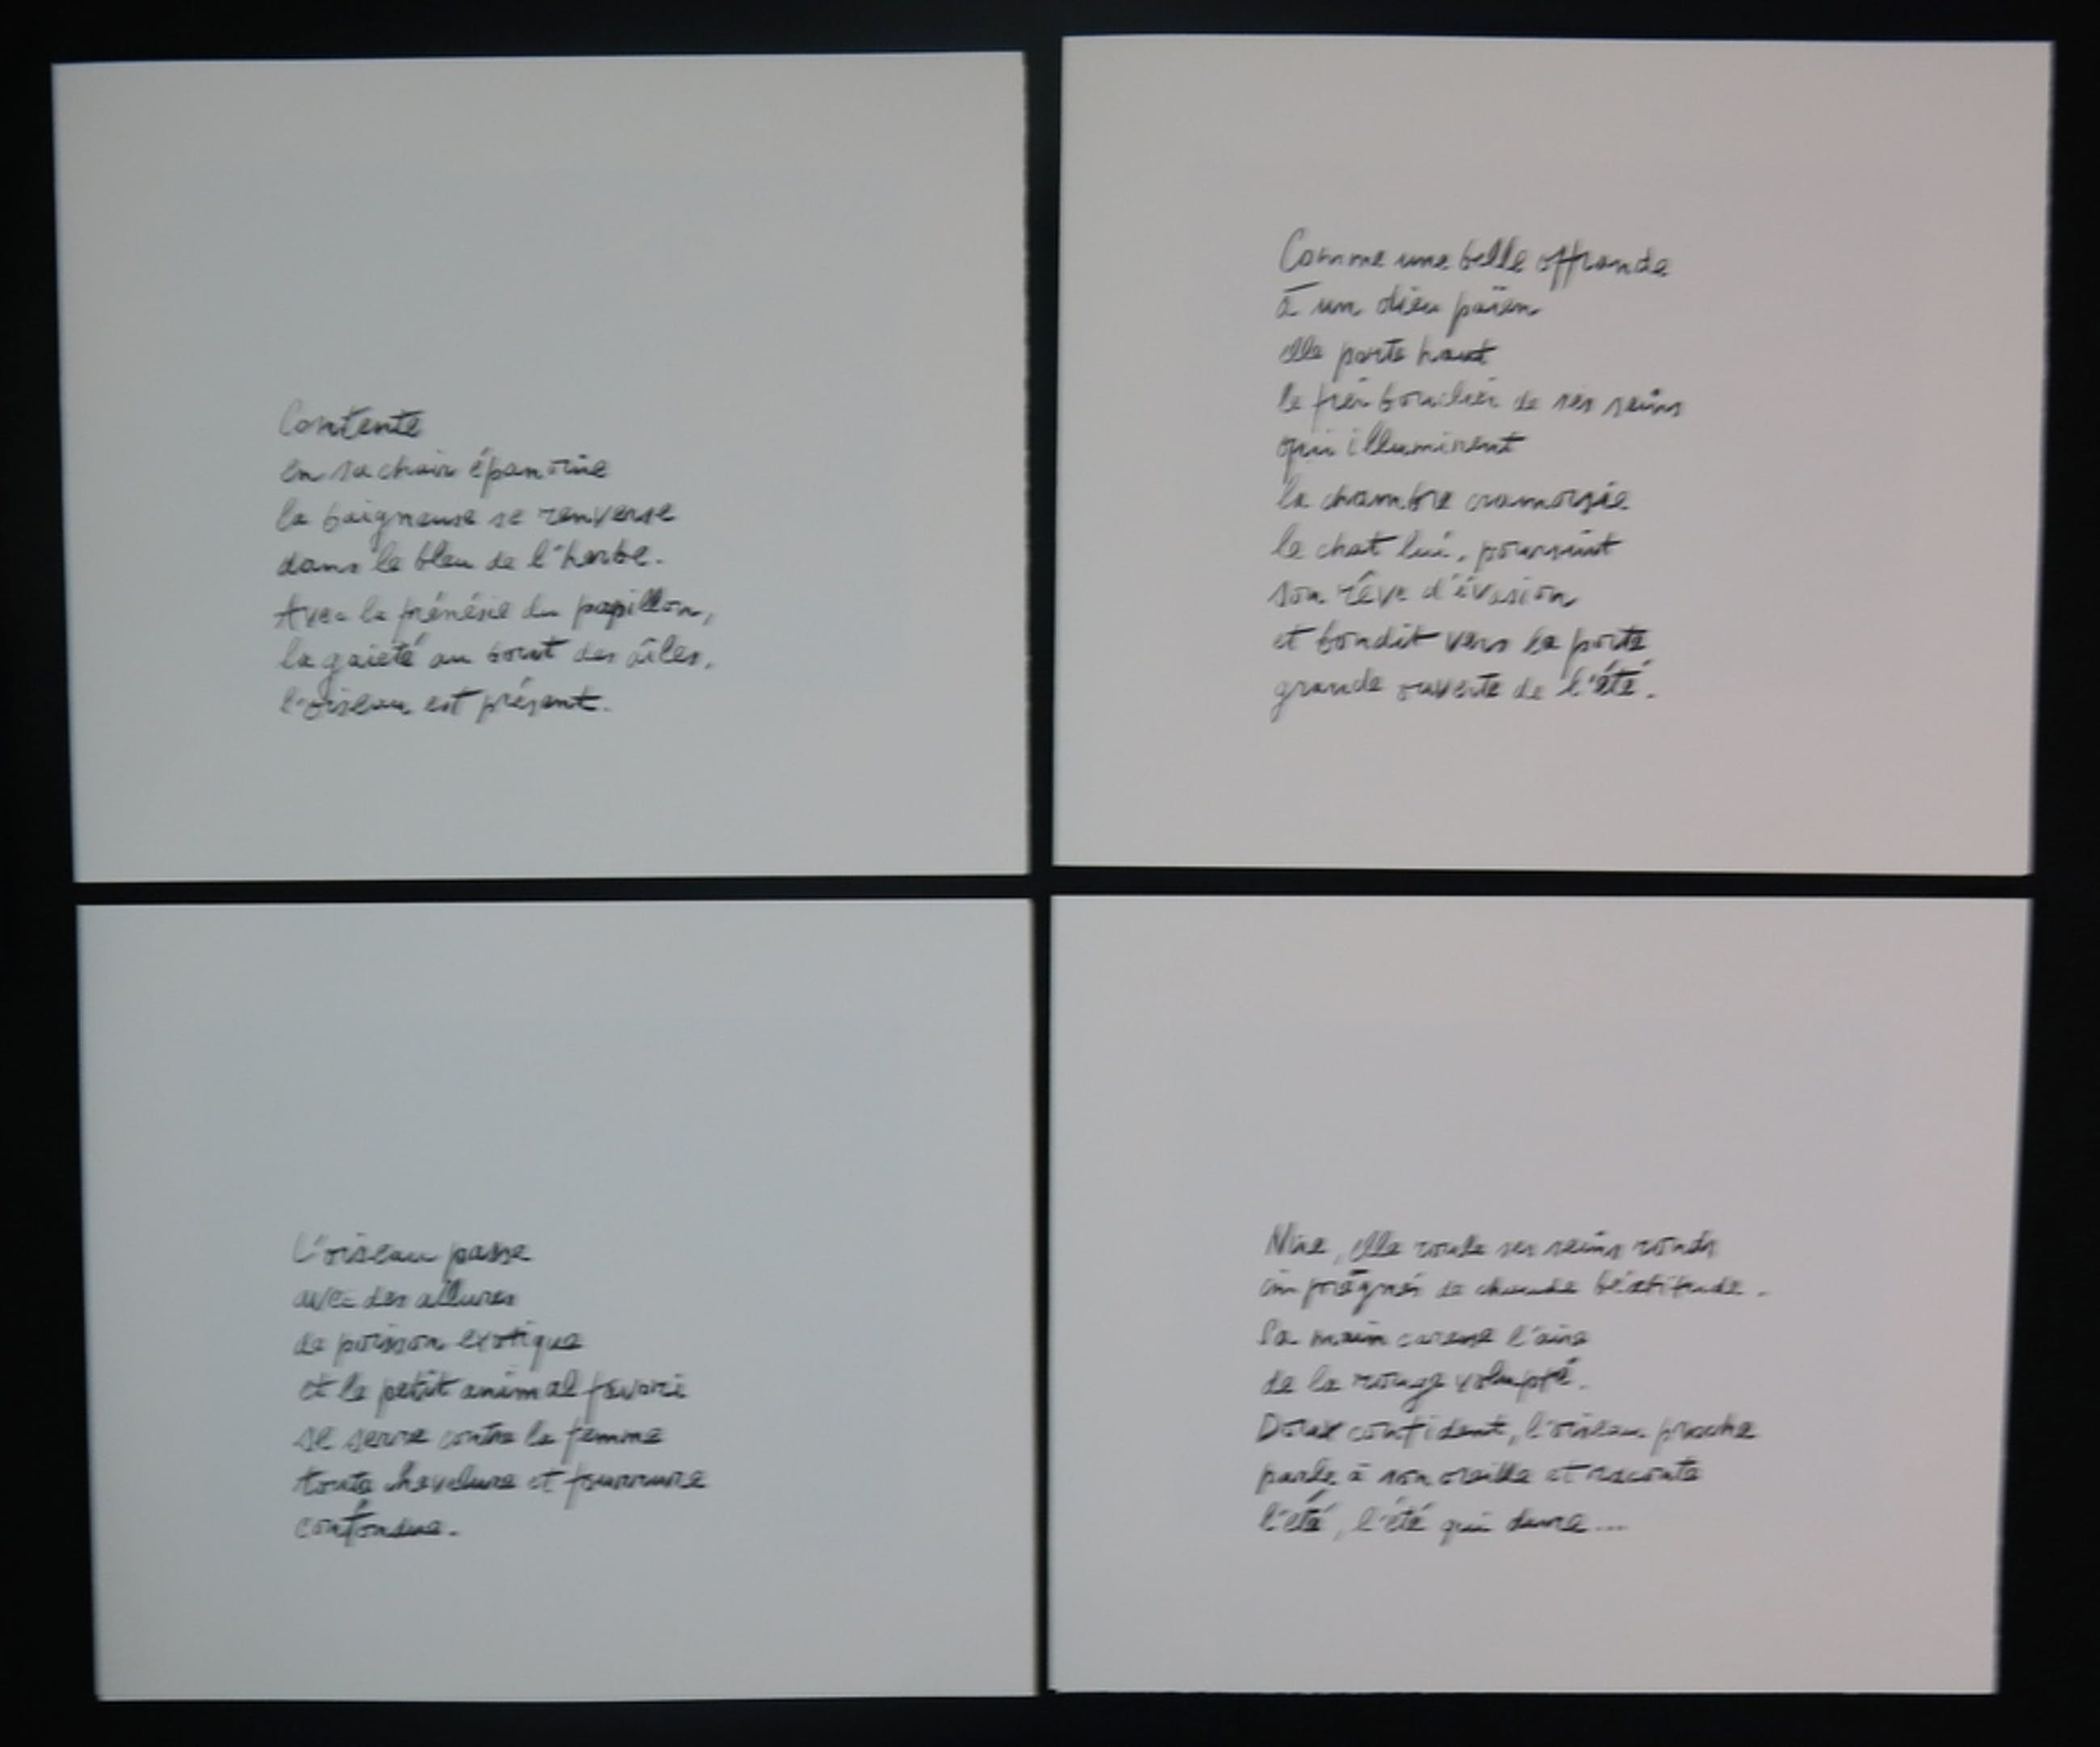 Contente
en sa chair épanouie
la baigneuse se renverse
dans le bleu de l'herbe.
Avec la frénésie du papillon,
la gaieté au bout des aîles,
l'oiseau est présent.
Comme une belle offrande
à un dieu païen
elle porte haut
le fier bouclier de ses seins
qui illuminent
la chambre cramoisie
le chat lui, poursuit
son rêve d'évasion
et bondit vers la porte
grande ouverte de l'été.
L'oiseau passe
avec des allures
de poisson exotique
et le petit animal favori
se serre contre la femme
toute chevelure et fourrure
confondue.
Nue, elle roule ses seins ronds
imprégnés de chaude béatitude.
Sa main caresse l'aine
de la rouge volupté.
Doux confident, l'oiseau proche
parle à son oreille et raconte
l'été, l'été qui dure...